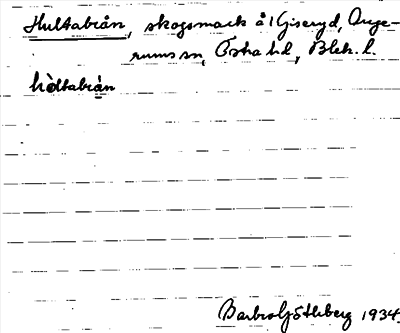 Hultabrån, skogsmark å 1 Giseryd, Ange-
rums sn, Östra hd, Blek. l.
hòltabrån
Barbro Götheberg 1934.